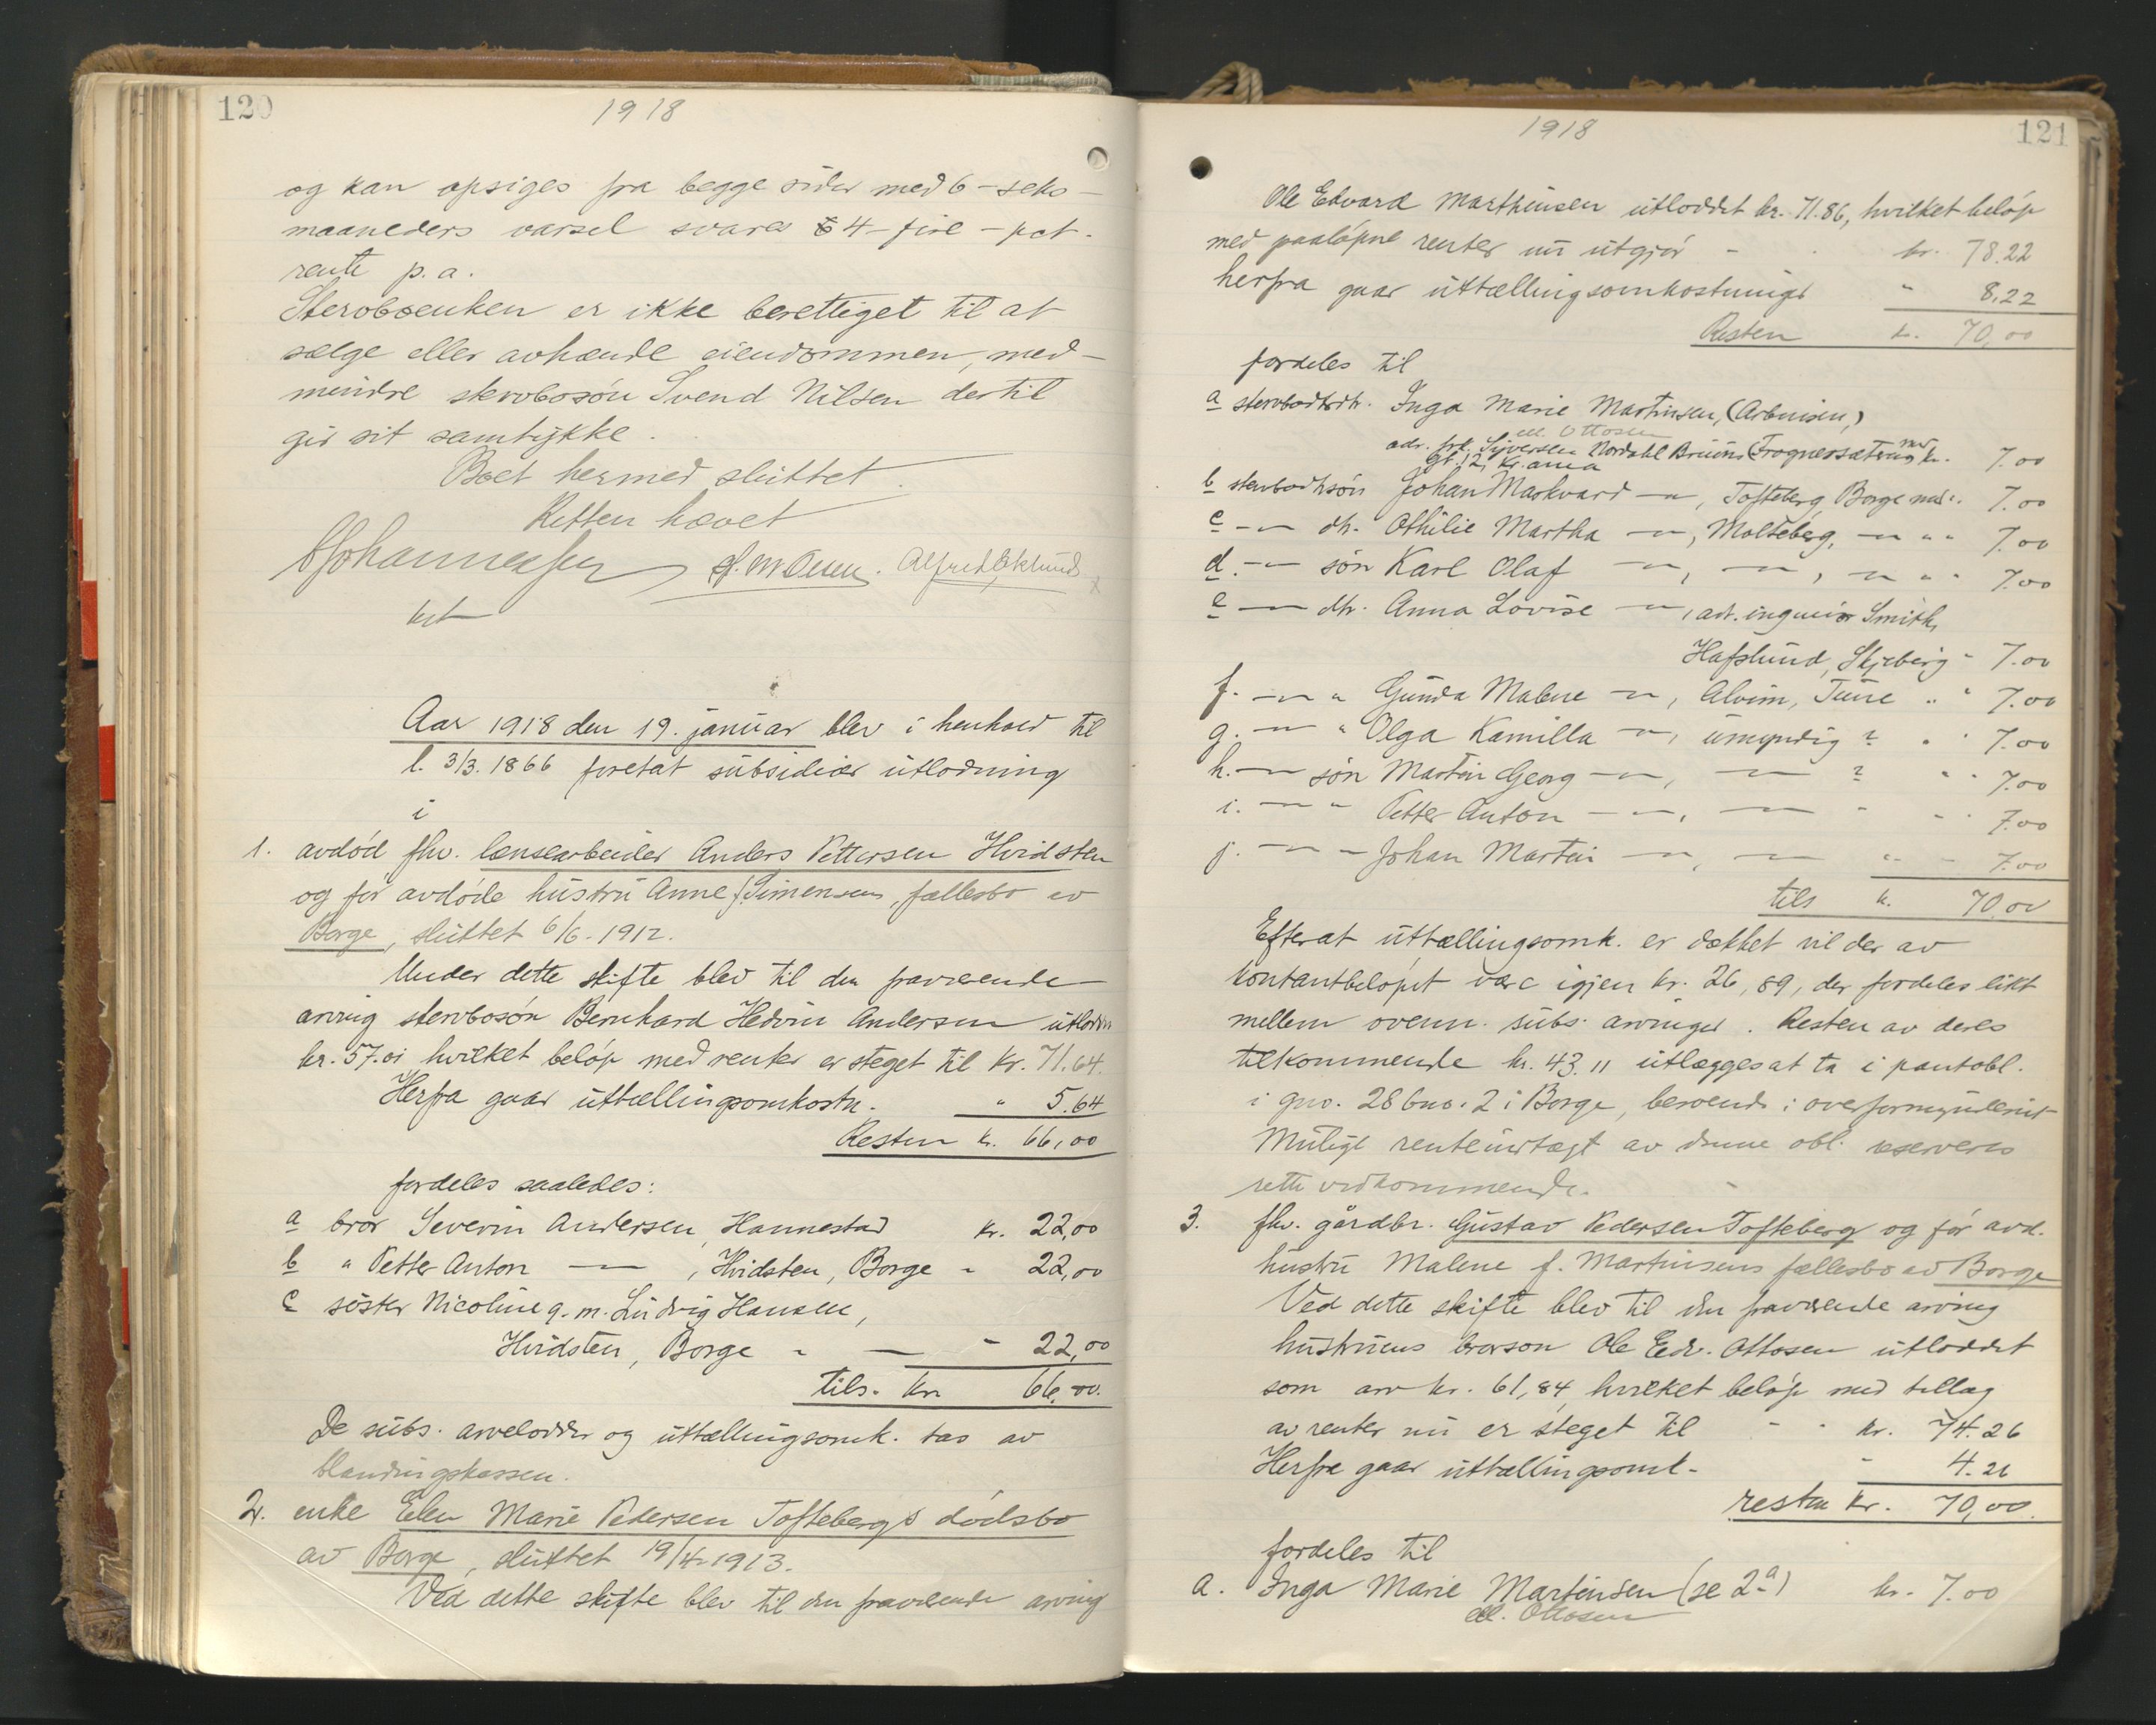 120
1918
og kan opsiges fra begge sider med 6 - seks -
maaneders varsel svares 4 - fire - pct.
rente p. a.
Stervboenken er ikke berettiget til at
sælge eller avhænde eiendommen, med-
mindre stervbosøn Svend Nilsen dertil
gir sit samtykke.
Boet hermed sluttet.
Retten hævet
Alfred Eklund
Aar 1918 den 19. januar blev i henhold til
l. 3/3. 1866 foretat subsidiær utlodning
i
1. avdød fhv. lensearbeider Anders Pettersen Hvidsten
og før avdøde hustru Anne f. Simensens, fællesbo av
Borge, sluttet 6/6-1912.
Under dette skifte blev til den fraværende
arving stervbosøn Bernhard Hedvin Andersen utloddet
kr. 57.01 hvilket beløp med renter er steget til kr. 71.64.
Herfra gaar uttællingsomkostn. " 5.64
Resten k. 66,00
fordeles saaledes:
a bror Severin Andersen, Hannestad kr. 22,00
b " Petter Anton —"— , Hvidsten, Borge " 22,00
c søster Nicoline g. m. Ludvig Hansen,
Hvidsten, Borge " — " 22,00
tils. kr. 66,00.
De subs. arvelodder og uttællingsomk. tas av
blandingskassen.
2. enke Elen Marie Petersen Toftebergs dødsbo
av Borge, sluttet 19/4-1913.
Ved dette skifte blev til den fraværende arving
1918
121
Ole Edvard Marthinsen utloddet kr. 71.86, hvilket beløp
med paaløpne renter nu utgjør - kr. 78.22
herfra gaar uttællingsomkostninger " 8,22
Resten k. 70,00
fordeles til
a stervbodtrdtr. Inga Marie Martinsen, (Arbeusen,)
ell. Ottosen
adr. frk. Syversen Nordahl Bruuns (Frognersæteren med kr. 7.00
gt. 12, Kr.ania
b stervbodtrsøn Johan Markvard —"—, Tofteberg, Borge med " 7.00
c —"— dtr. Othilie Martha —"—, Molteberg, —"— " " 7.00
d. —"— søn Karl Olaf —"—, —"—, —"— " " 7.00
e —"— dtr. Anna Lovise —"—, adr. ingeniør Smith,
Hafslund, Skjeberg " 7.00
f. —"— " Gunda Malene —"—, Alvim, Tune " " 7.00
g. —"— " Olga Kamilla —"—, umyndig ? " " 7.00
h. —"— søn Martin Georg —"—, —"— ? " " 7.00
i. —"— " Petter Anton —"—, —"— " " " 7.00
j. —"— " Johan Martin —"—, —"— " " 7.00
tils k. 70,00
Efterat uttællingsomk. er dækket vil der av
kontantbeløpet være igjen kr. 26,89, der fordeles likt
mellem ovenn. subs. arvinger. Resten av deres
tilkommende kr. 43.11 utlægges at ta i pantobl.
i gno. 28 bno. 2 i Borge, beroende i overformynderiet
Mulige renteindtægt av denne obl. reserveres
rette vedkommende.
3. fhv. gårdbr. Gustav Pedersen Tofteberg og før avd.
hustru Malene f. Martinsens fællesbo av Borge
Ved dette skifte blev til den fraværende arving
hustruens brorsøn Ole Edv. Ottosen utloddet
som arv kr. 61,84, hvilket beløp med tillæg
av renter nu er steget til - - kr. 74.26
Herfra gaar uttællingsomk. - " 4.26
resten kr. 70,00.
fordeles til
a. Inga Marie Martinsen (se 2 a) kr. 7.00
ell. Ottosen